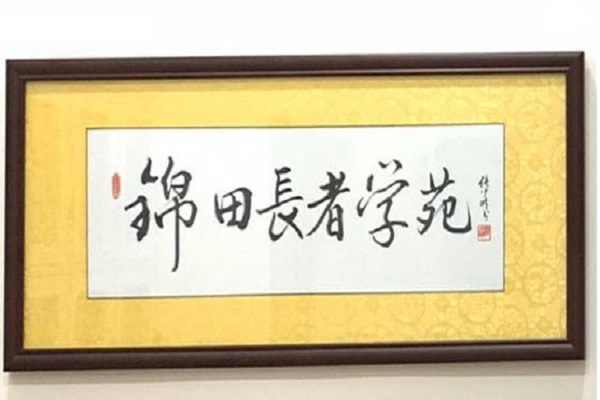 錦田長者学苑